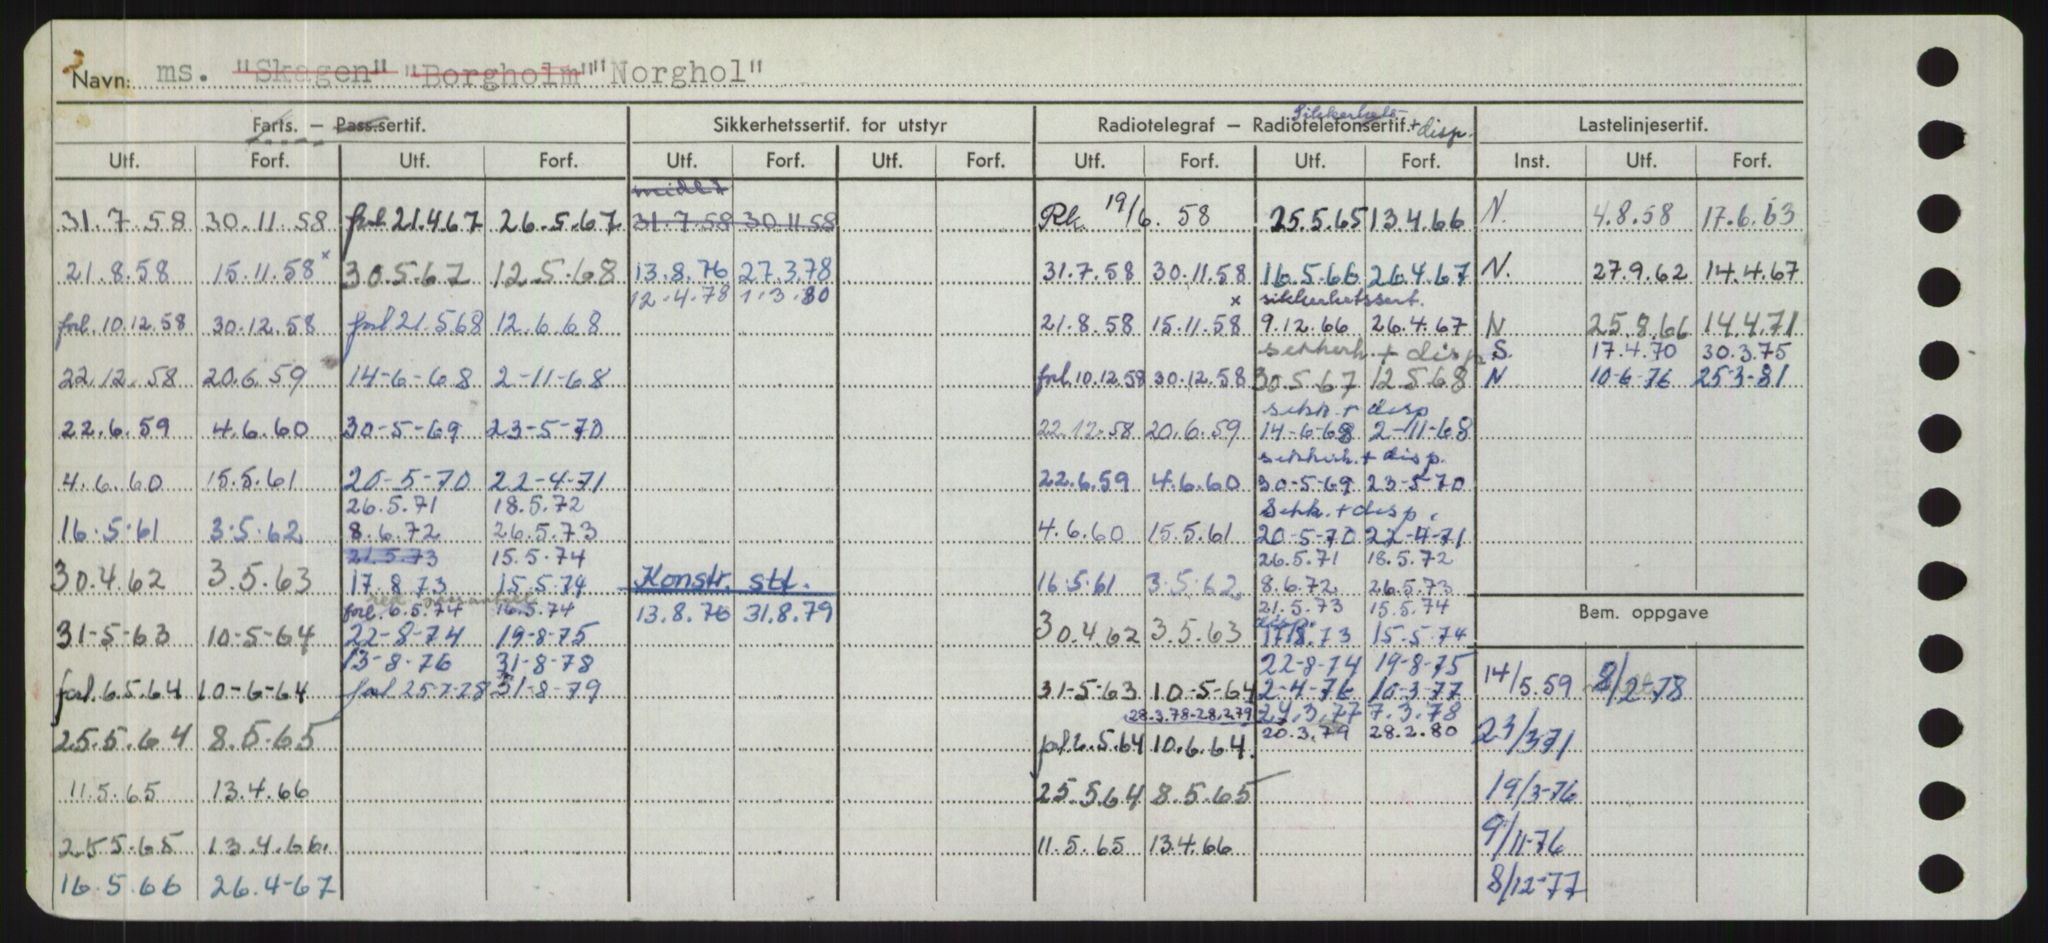 Navn: ms. "Skagen" "Borgholm" "Norghol"
Farts. — Pass.sertif. Sikkerhetssertif. for utstyr Radiotelegraf — Radiotelefonsertif. + disp. Lastelinjesertif.
Sikkerhets-
Utf. Forf. Utf. Forf. Utf. Forf. Utf. Forf. Utf. Forf. Utf. Forf. Inst. Utf. Forf.
31.7.58 30.11.58
21.8.58 15.11.58 x
forl. 10.12.58 30.12.58
22.12.58 20.6.59
22.6.59 4.6.60
4.6.60 15.5.61
16.5.61 3.5.62
30.4.62 3.5.63
31-5-63 10-5-64
forl. 6.5.64 10-6-64
25.5.64 8.5.65
11.5.65 13.4.66
25.5.65 13.4.66.
16.5.66 26.4-67
forl 21.4.67 26.5.67
30.5.67 12.5.68
forl 21.5.68 12.6.68
14-6-68 2-11-68
30-5-69 23-5-70
20-5-70 22-4-71
26.5.71 18.5.72
8.6.72 26.5.73
21.5.73 15.5.74
17.8.73 15.5.74
forl. 6.5.74 16.5.74
22-8-74 19-8-75
13-8-76 31-8-78
forl 25-7-78 31-8-79
midl.t
31.7.58 30.11.58
13.8.76 27.3.78
12.4.78 1.3.80
Konstr. stt.
13.8.76 31.8.79
Rk. 19/6. 58
31.7.58 30.11.58
x
21.8.58 15.11.58
forl. 10.12.58 30.12.58
22.12.58 20.6.59
22.6.59 4.6.60
4.6.60 15.5.61
16.5.61 3.5.62.
30.4.62 3.5.63
31-5-63 10-5-64
28.3.78-28.2.79
forl. 6.5.64 10.6.64.
25.5.64 8.5.65
11.5.65 13.4.66
25.5.65 13.4.66
16.5.66 26.4.67
sikkerhetssert.
9.12.66 26.4.67
sikkerh. + disp.
30.5.67 12.5.68
sikk. + disp
14-6-68 2-11-68
sikkerh. + disp.
30-5-69 23-5-70
Sikk. + disp.
20-5-70 22-4-71
26.5.71 18.5.72
8.6.72 26.5.73
21.5.73 15.5.74
disp.
17.8.73 15.5.74
22-8-74 19-8-75
2-4-76 10-3-77
24.3.77 7.3.78
20.3.79 28.2.80
N. 4.8.58 17.6.63
N. 27.9.62 14.4.67
N 25.8.66 14.4.71
S. 17.4.70 30.3.75
N 10-6-76 25-3-81
Bem. oppgave
14/5.59 8/2-78
23/3-71
19/3-76
9/11-76
8/12-77